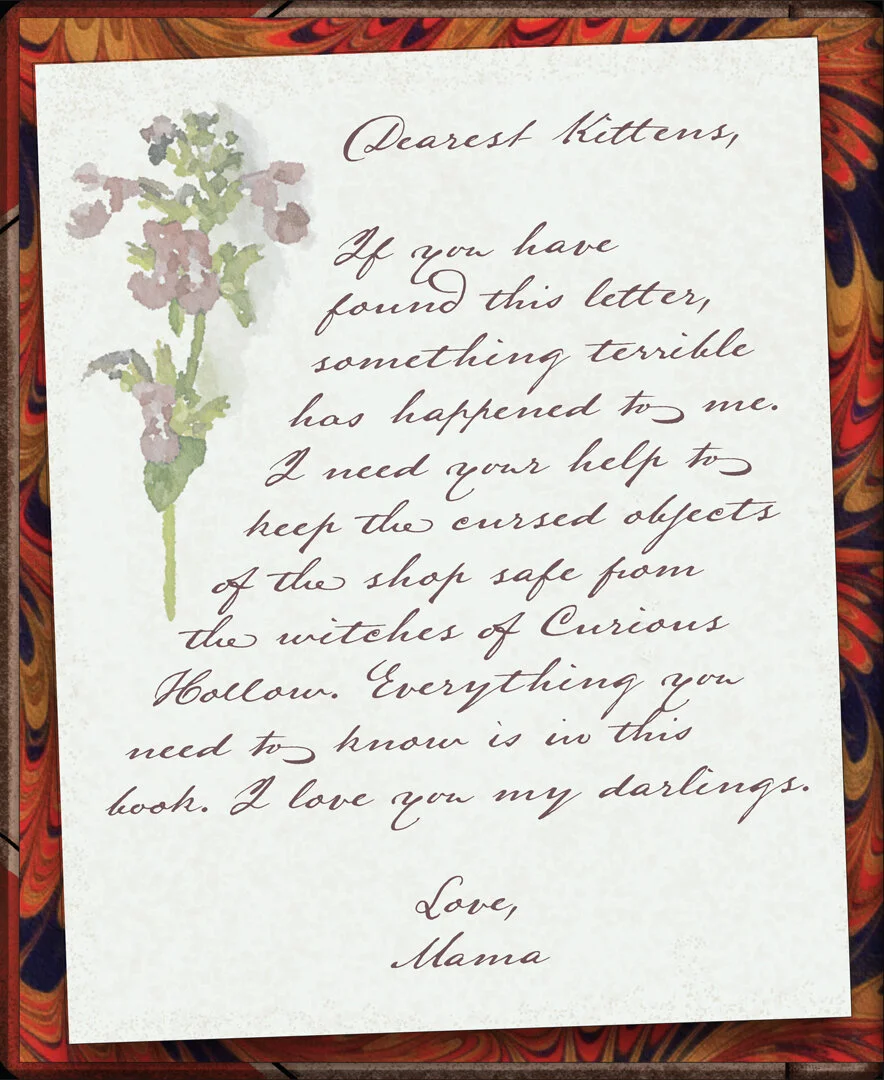 Dearest Kittens,
If you have
found this letter,
something terrible
has happened to me.
I need your help to
keep the cursed objects
of the shop safe from
the witches of Curious
Hollow. Everything you
need to know is in this
book. I love you my darlings.
Love,
Mama